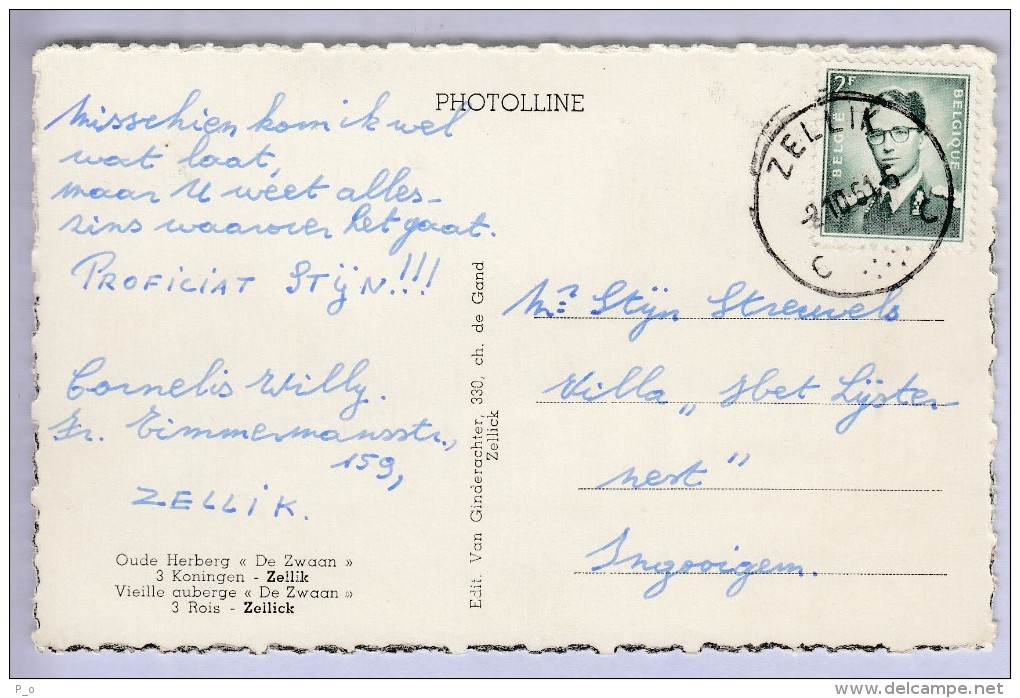 PHOTOLLINE
Misschien kom ik wel
wat laat,
maar U weet alles-
zins waarover het gaat.
PROFICIAT STIJN!!!
Cornelis Willy.
Fr. Timmermansstr.,
159,
ZELLIK.
Oude Herberg « De Zwaan »
3 Koningen - Zellik
Vieille auberge « De Zwaan »
3 Rois - Zellick
Edit. Van Ginderachter, 330, ch. de Gand
Zellick
2F
BELGIE
BELGIQUE
ZELLIK
C
C
Mr. Stijn Streuvels
Villa „Het Lijster-
nest”
Ingooigem.
P_o
www.delcampe.net